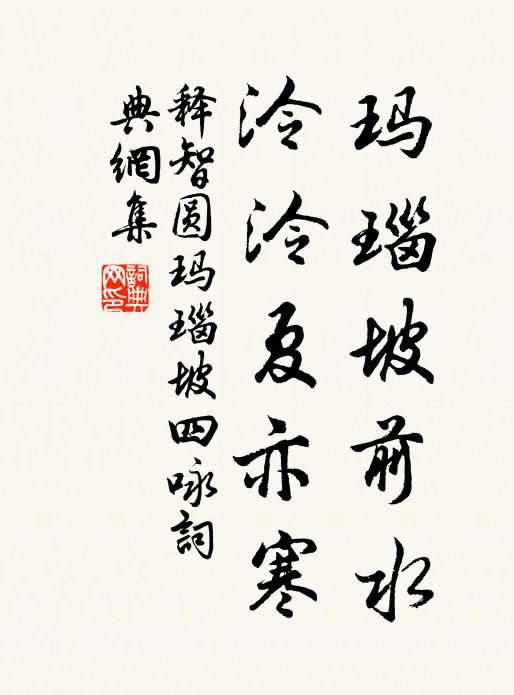 玛瑙坡前水
泠泠夏亦寒
释智圆玛瑙坡四咏詞
典網集
詞典网印